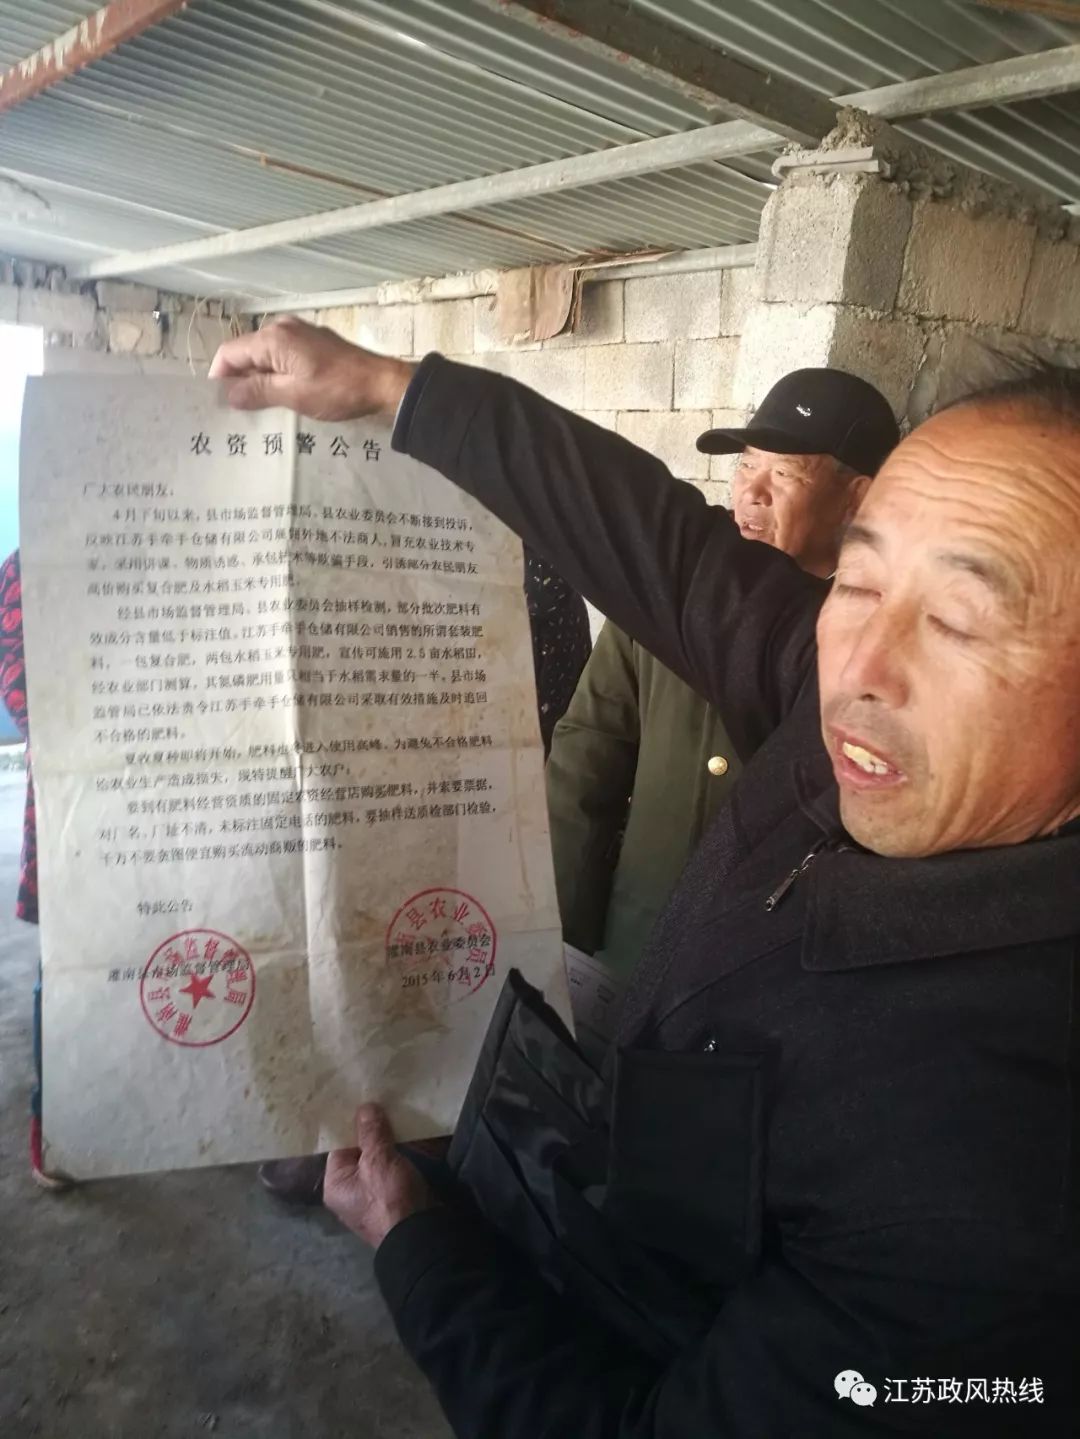 农资预警公告
广大农民朋友:
4月下旬以来,县市场监督管理局、县农业委员会不断接到投诉,
反映江苏手牵手仓储有限公司雇佣外地不法商人,冒充农业技术专
家,采用讲课、物质诱惑、承包技术等欺骗手段,引诱部分农民朋友
高价购买复合肥及水稻玉米专用肥。
经县市场监督管理局、县农业委员会抽样检测,部分批次肥料有
效成分含量低于标注值。江苏手牵手仓储有限公司销售的所谓套装肥
料,一包复合肥,两包水稻玉米专用肥,宣传可施用2.5亩水稻田,
经农业部门测算,其氮磷肥用量只相当于水稻需求量的一半。县市场
监管局已依法责令江苏手牵手仓储有限公司采取有效措施及时追回
不合格的肥料。
夏收夏种即将开始,肥料也将进入使用高峰。为避免不合格肥料
给农业生产造成损失,现特提醒广大农户:
要到有肥料经营资质的固定农资经营店购买肥料,并索要票据,
对厂名、厂址不清,未标注固定电话的肥料,要抽样送质检部门检验,
千万不要贪图便宜购买流动商贩的肥料。
特此公告
灌南县市场监督管理局
灌南县农业委员会
2015年6月2日
江苏政风热线